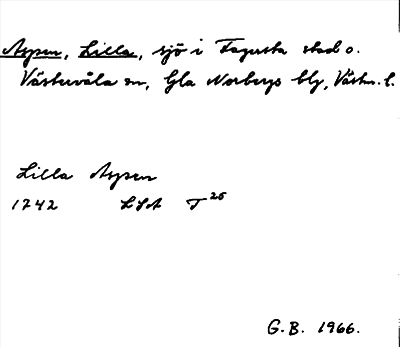 Aspen, Lilla, sjö i Fagersta stad o.
Västervåla sn, Gla Norbergs blg, Västm. l.
Lilla Aspen
1742 LSA T 26
G.B. 1966.